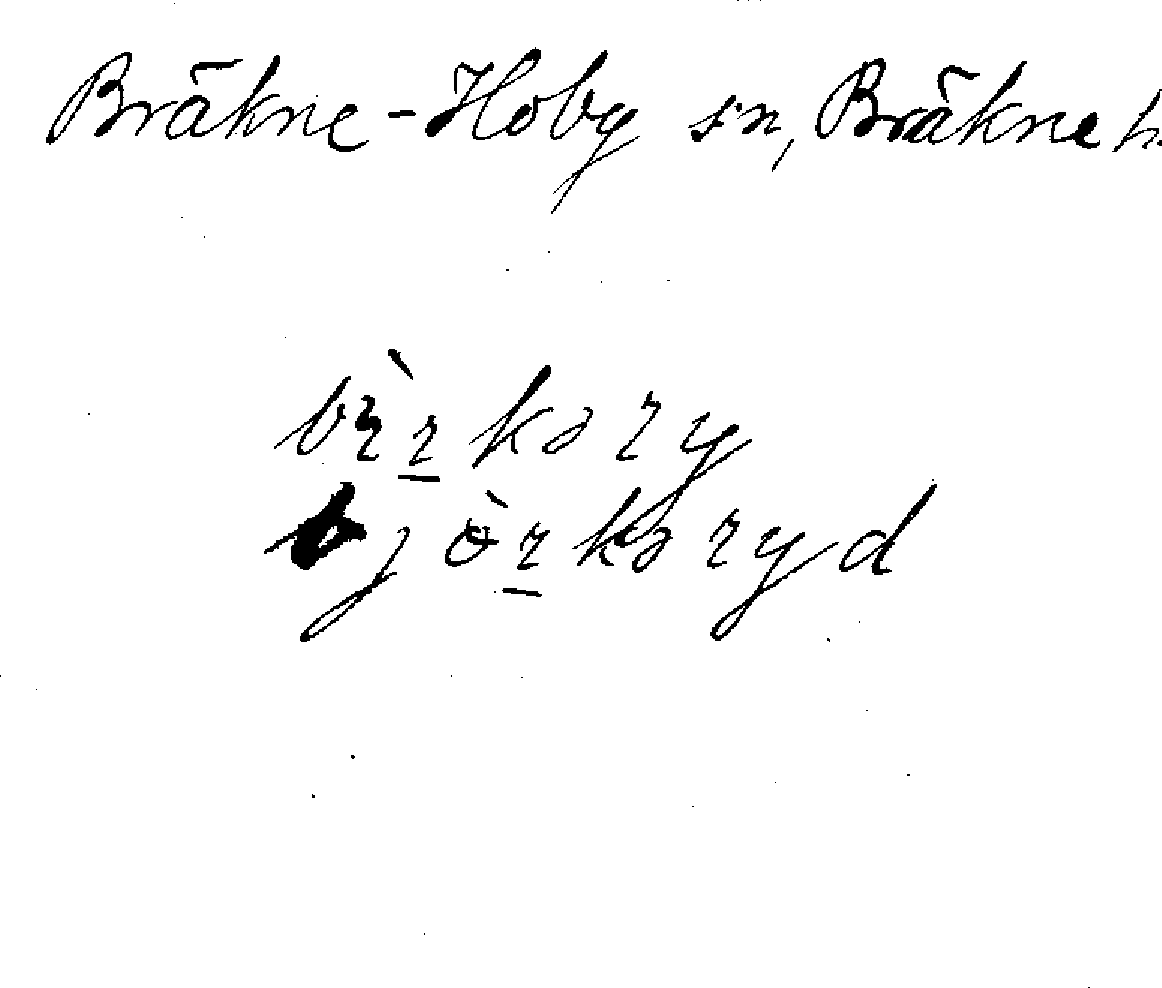 Bräkne-Hoby sn, Bräkne h.
bɪ̀r̠kəry
bjɵ̀r̠kəryd